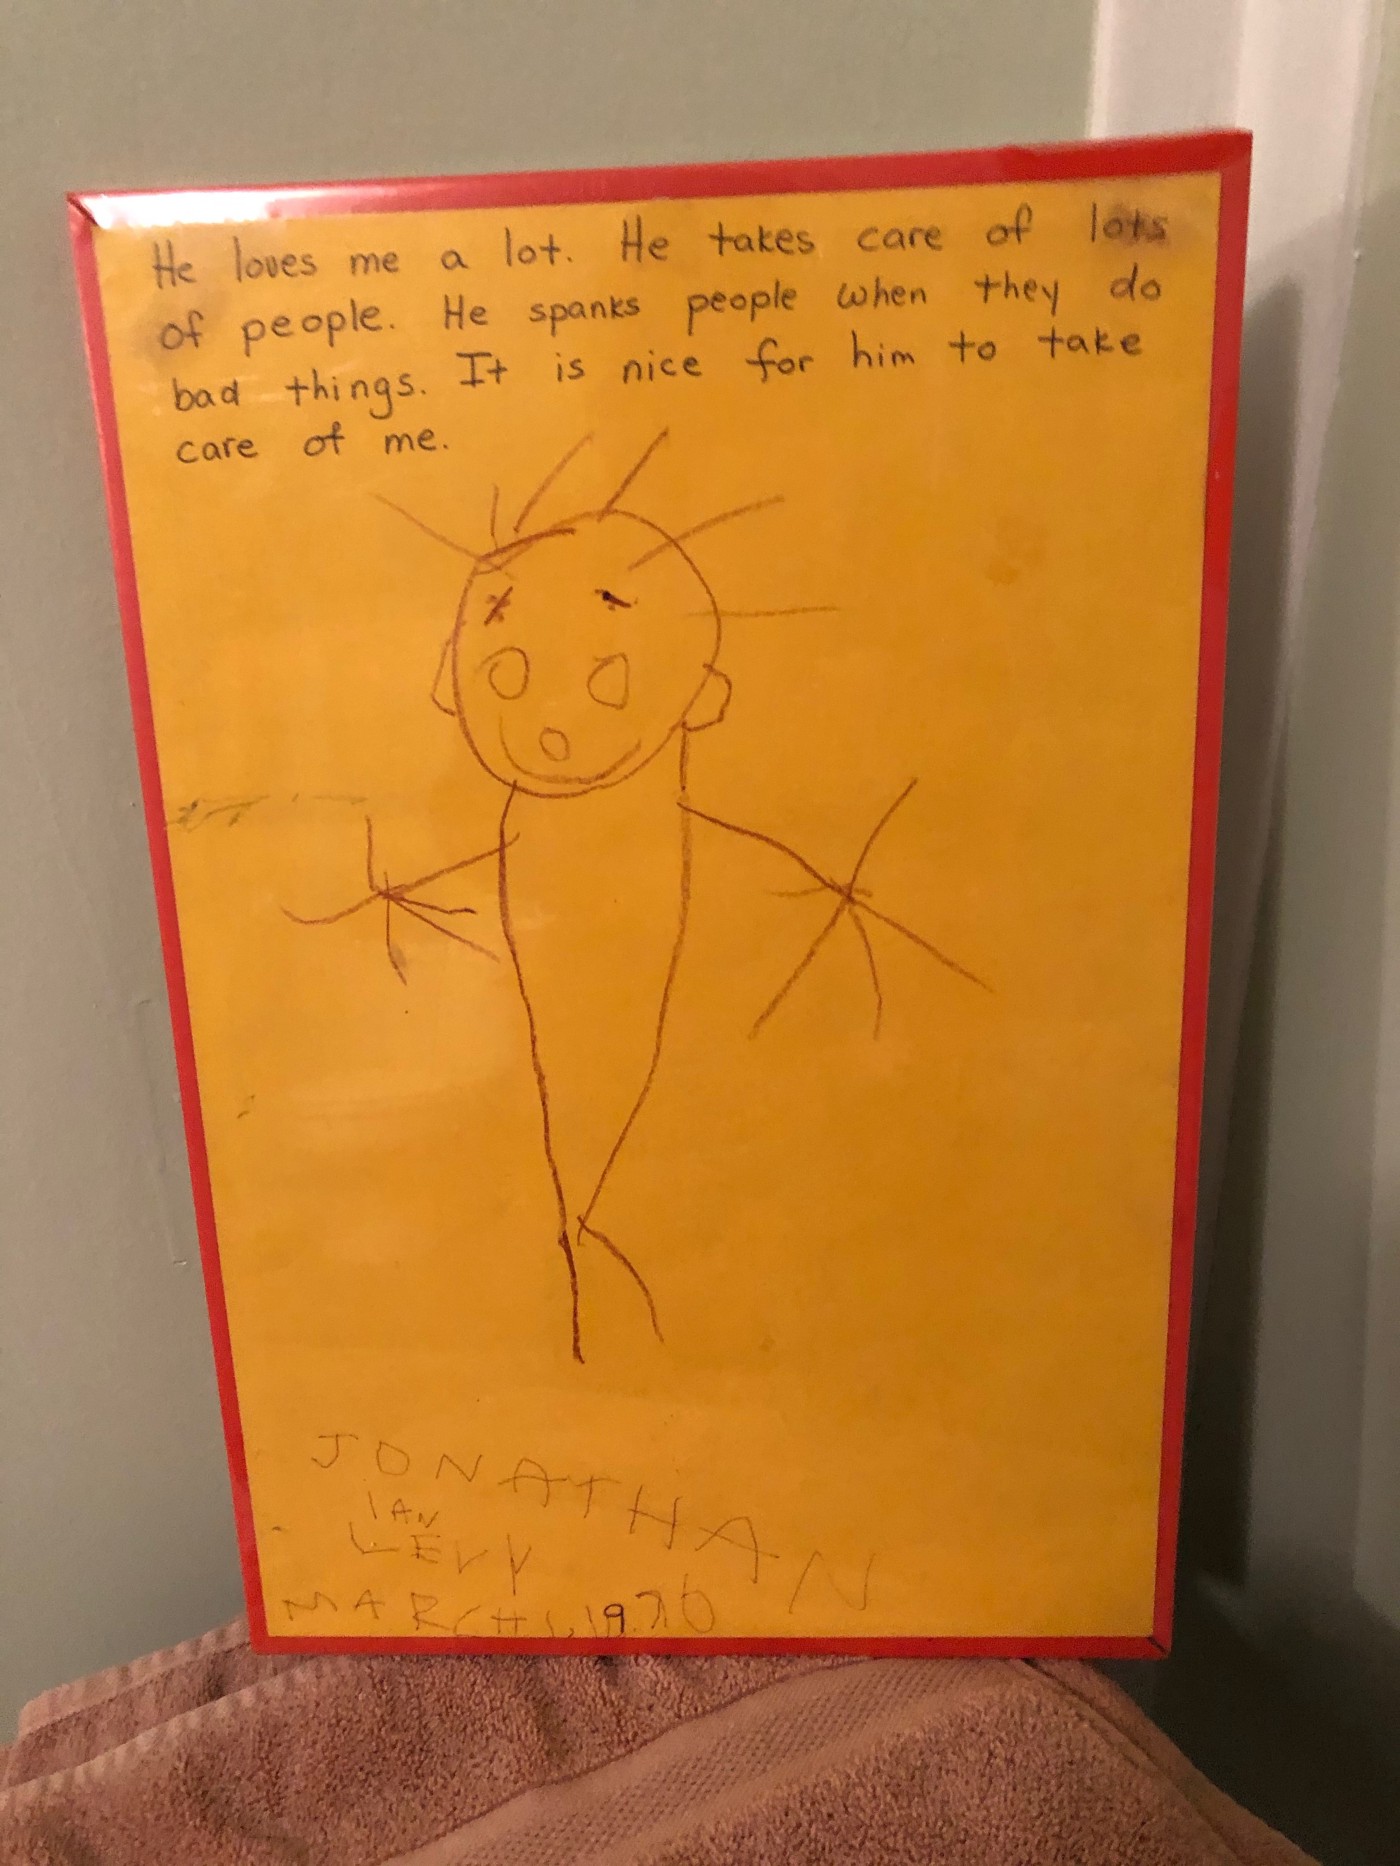 He loves me a lot. He takes care of lots
of people. He spanks people when they do
bad things. It is nice for him to take
care of me.
JONATHAN
IAN
LEVY
MARCH 1, 1976